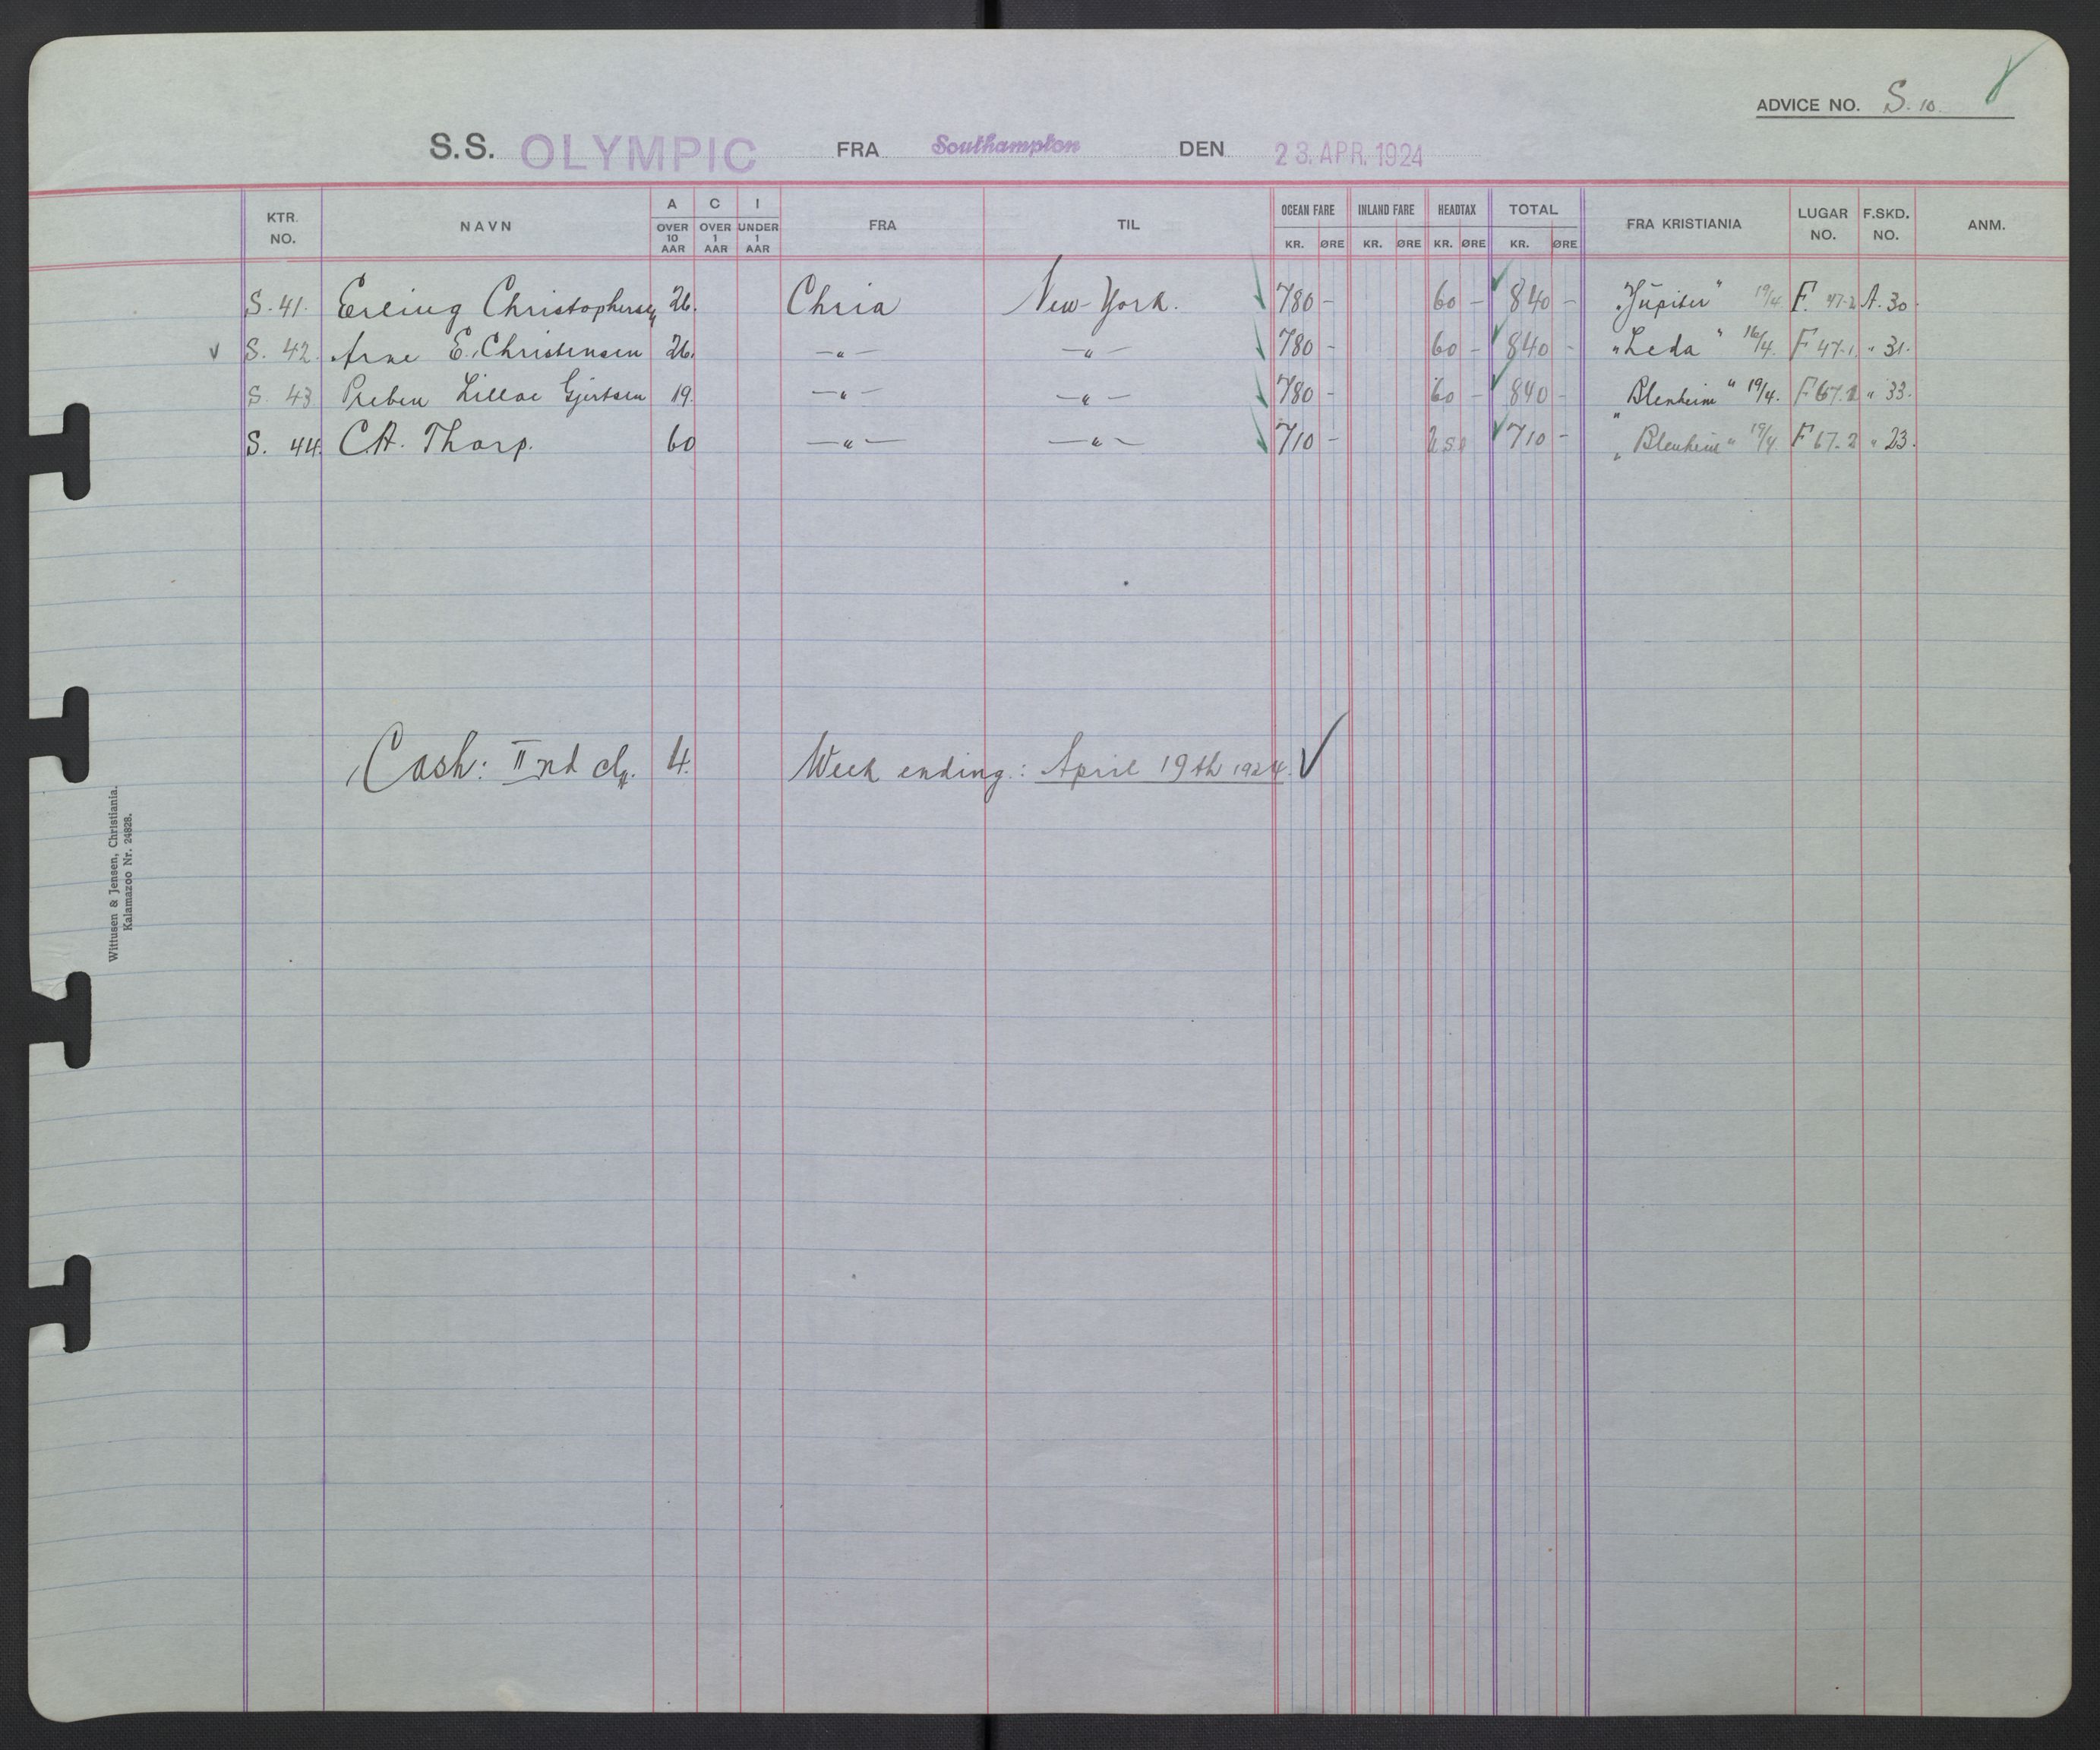 ADVICE NO. S. 10.
S.S. OLYMPIC FRA Southampton DEN 23. APR. 1924
KTR. NO. NAVN A OVER 10 AAR C OVER 1 AAR I UNDER 1 AAR FRA TIL OCEAN FARE KR. ØRE INLAND FARE KR. ØRE HEADTAX KR. ØRE TOTAL KR. ØRE FRA KRISTIANIA LUGAR NO. F.SKD. NO. ANM.
S. 41. Erling Christophersen 26. Chria New-York. 780 - 60 - 840 - "Jupiter" 19/4 F. 47-2 A. 30
S. 42. Arne E. Christensen 26. —"— —"— 780 - 60 - 840 - "Leda" 16/4. F 47-1. " 31.
S. 43 Preben Lilloe Gjertsen 19. —"— —"— 780 - 60 - 840 - "Blenheim" 19/4. F 67-1 " 33.
S. 44. C.A. Thorp. 60 —"— —"— 710 - 710 - "Blenheim" 19/4 F 67-2 " 23.
Cash: IInd cl. 4. Week ending.: April 19th 1924.
Wittusen & Jensen, Christiania.
Kalamazoo Nr. 24828.